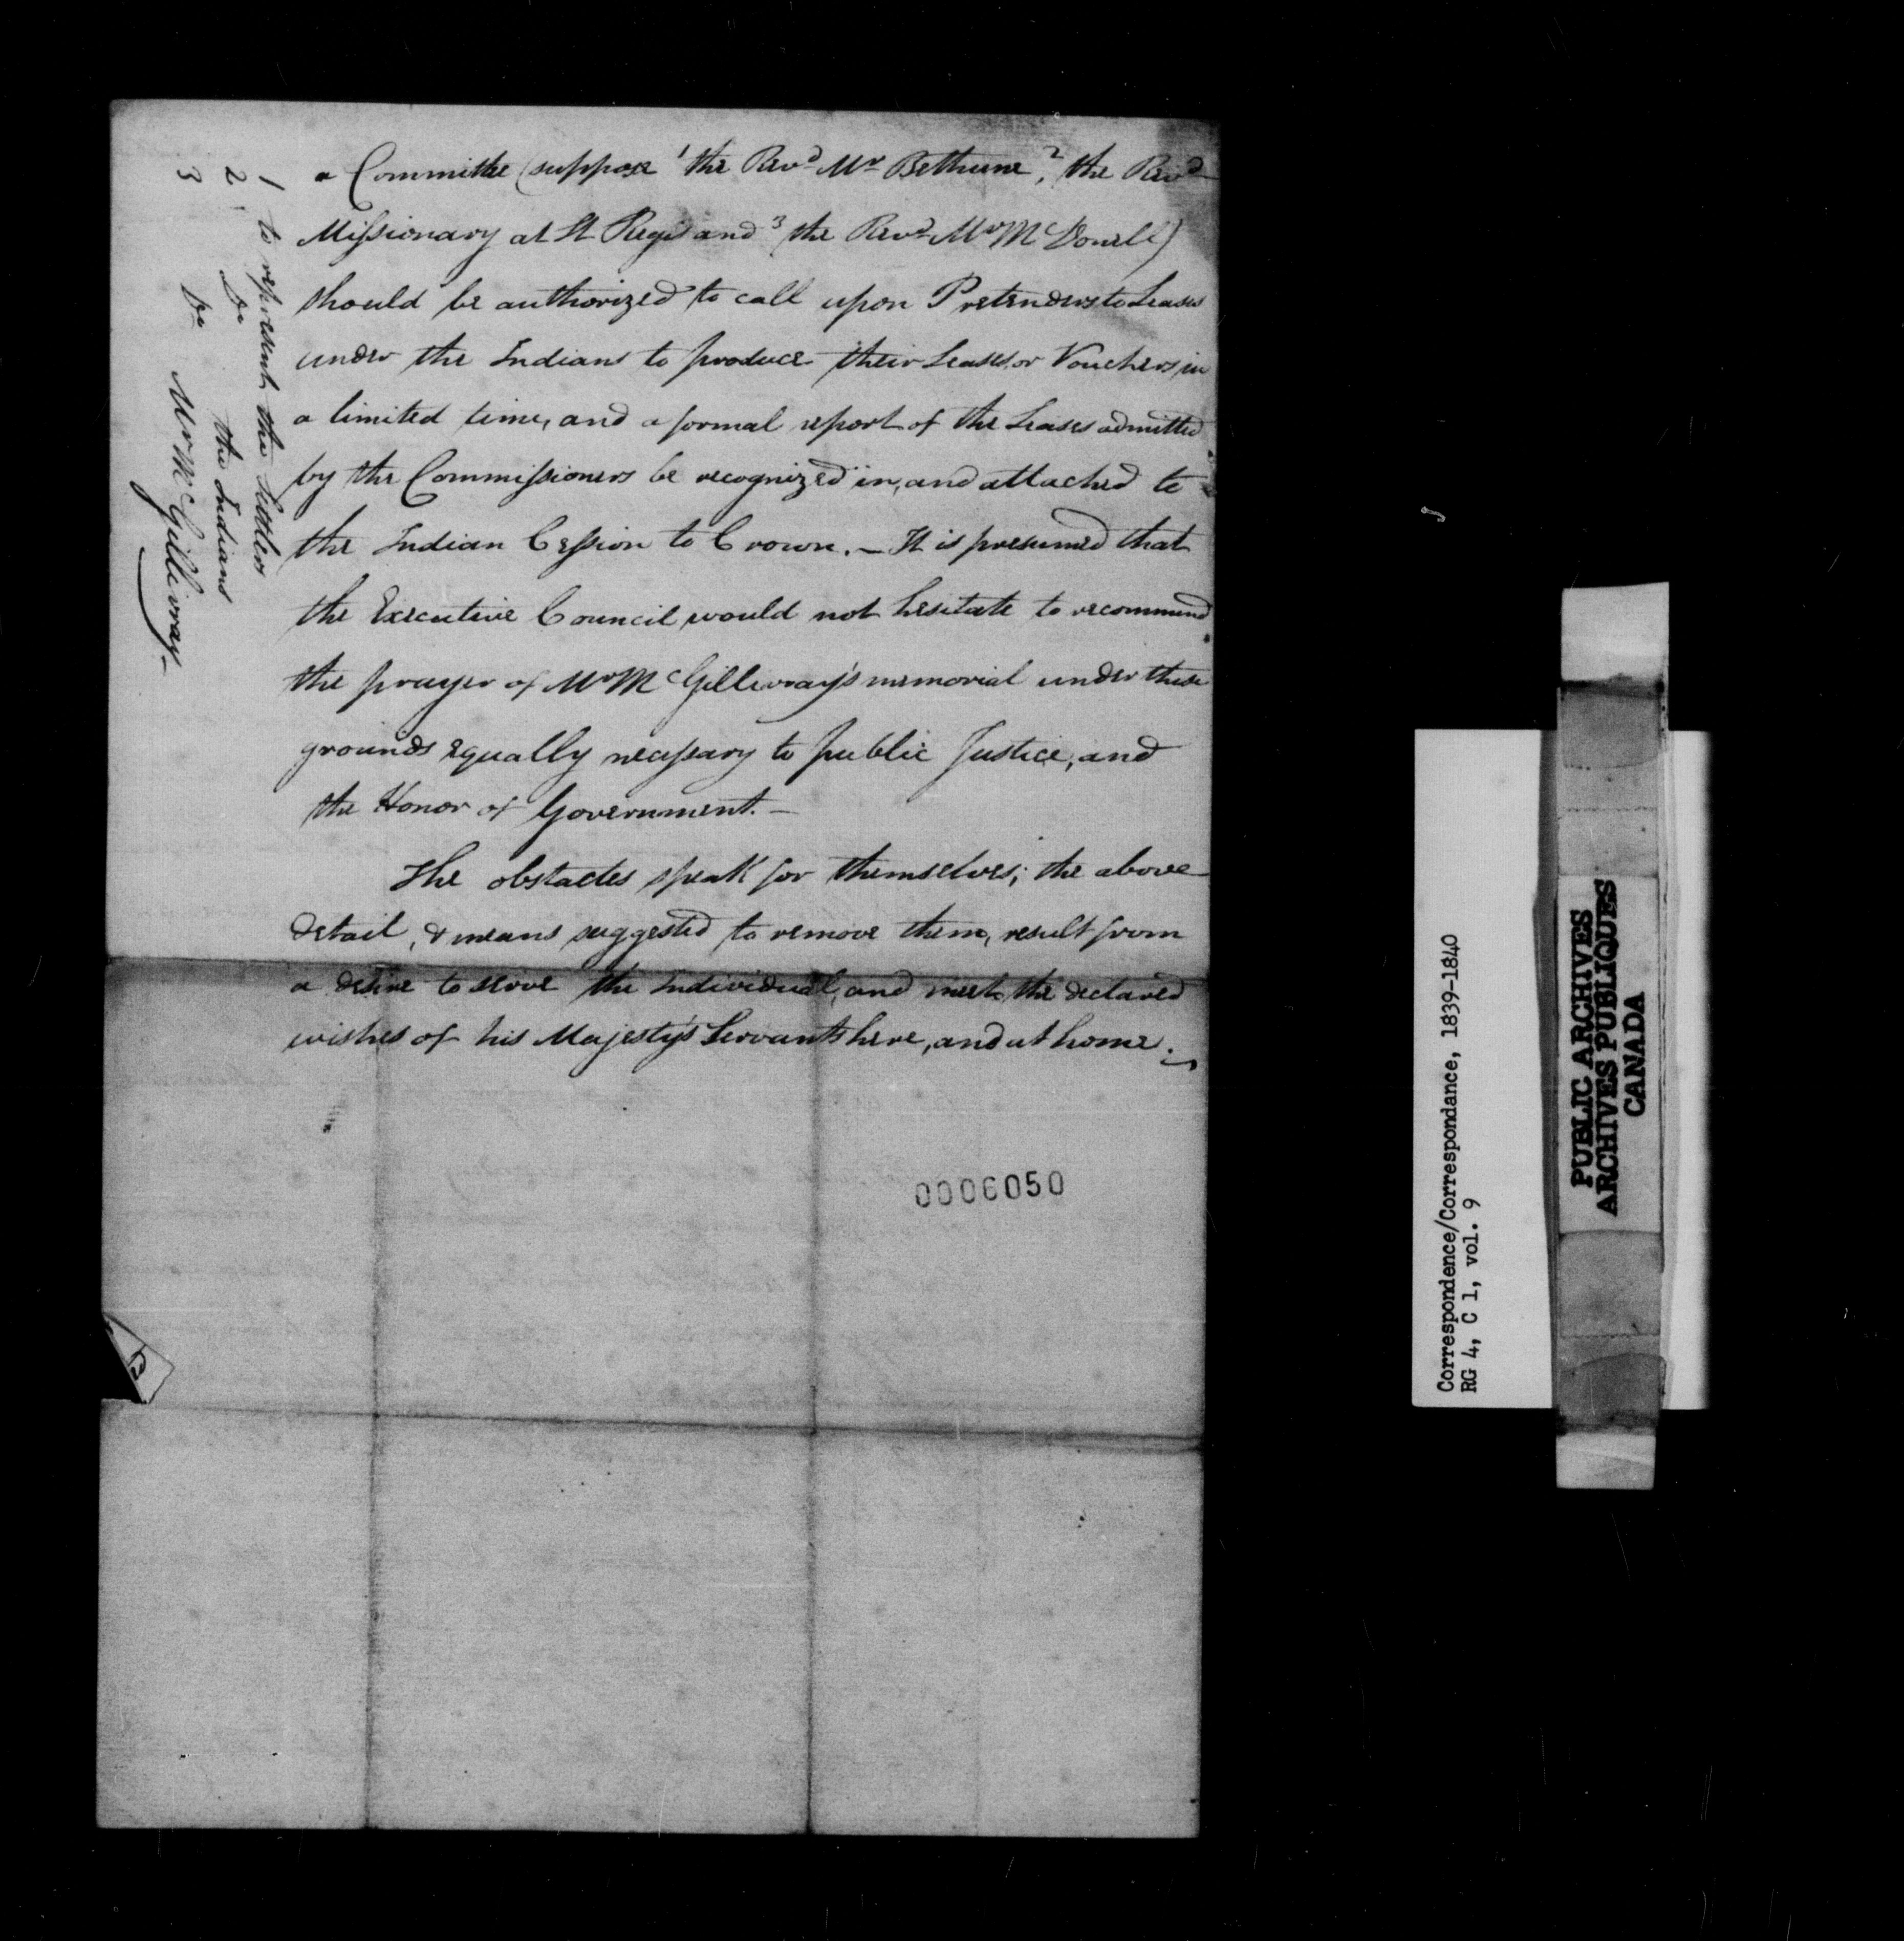 a Committee (suppose ¹ the Revd Mr Bethune, ² the Revd
Missionary at St Regis and ³ the Revd Mr McDonell)
should be authorized to call upon Pretenders to Leases
under the Indians to produce their Leases or Vouchers in
a limited time, and a formal report of the Leases admitted
by the Commissioners be recognized in, and attached to
the Indian Cession to Crown. — It is presumed that
the Executive Council would not hesitate to recommend
the prayer of Mr McGillivray's memorial under these
grounds equally necessary to public Justice, and
the Honor of Government. —
The obstacles speak for themselves; the above
detail, & means suggested to remove them, result from
a desire to serve the Individual, and meet the declared
wishes of his Majesty's Servants here, and at home.
1 to represent the Settlers
2 Do the Indians
3 Do Mr McGillivray —
0006050
Correspondence/Correspondance, 1839-1840
RG 4, C 1, vol. 9
PUBLIC ARCHIVES
ARCHIVES PUBLIQUES
CANADA